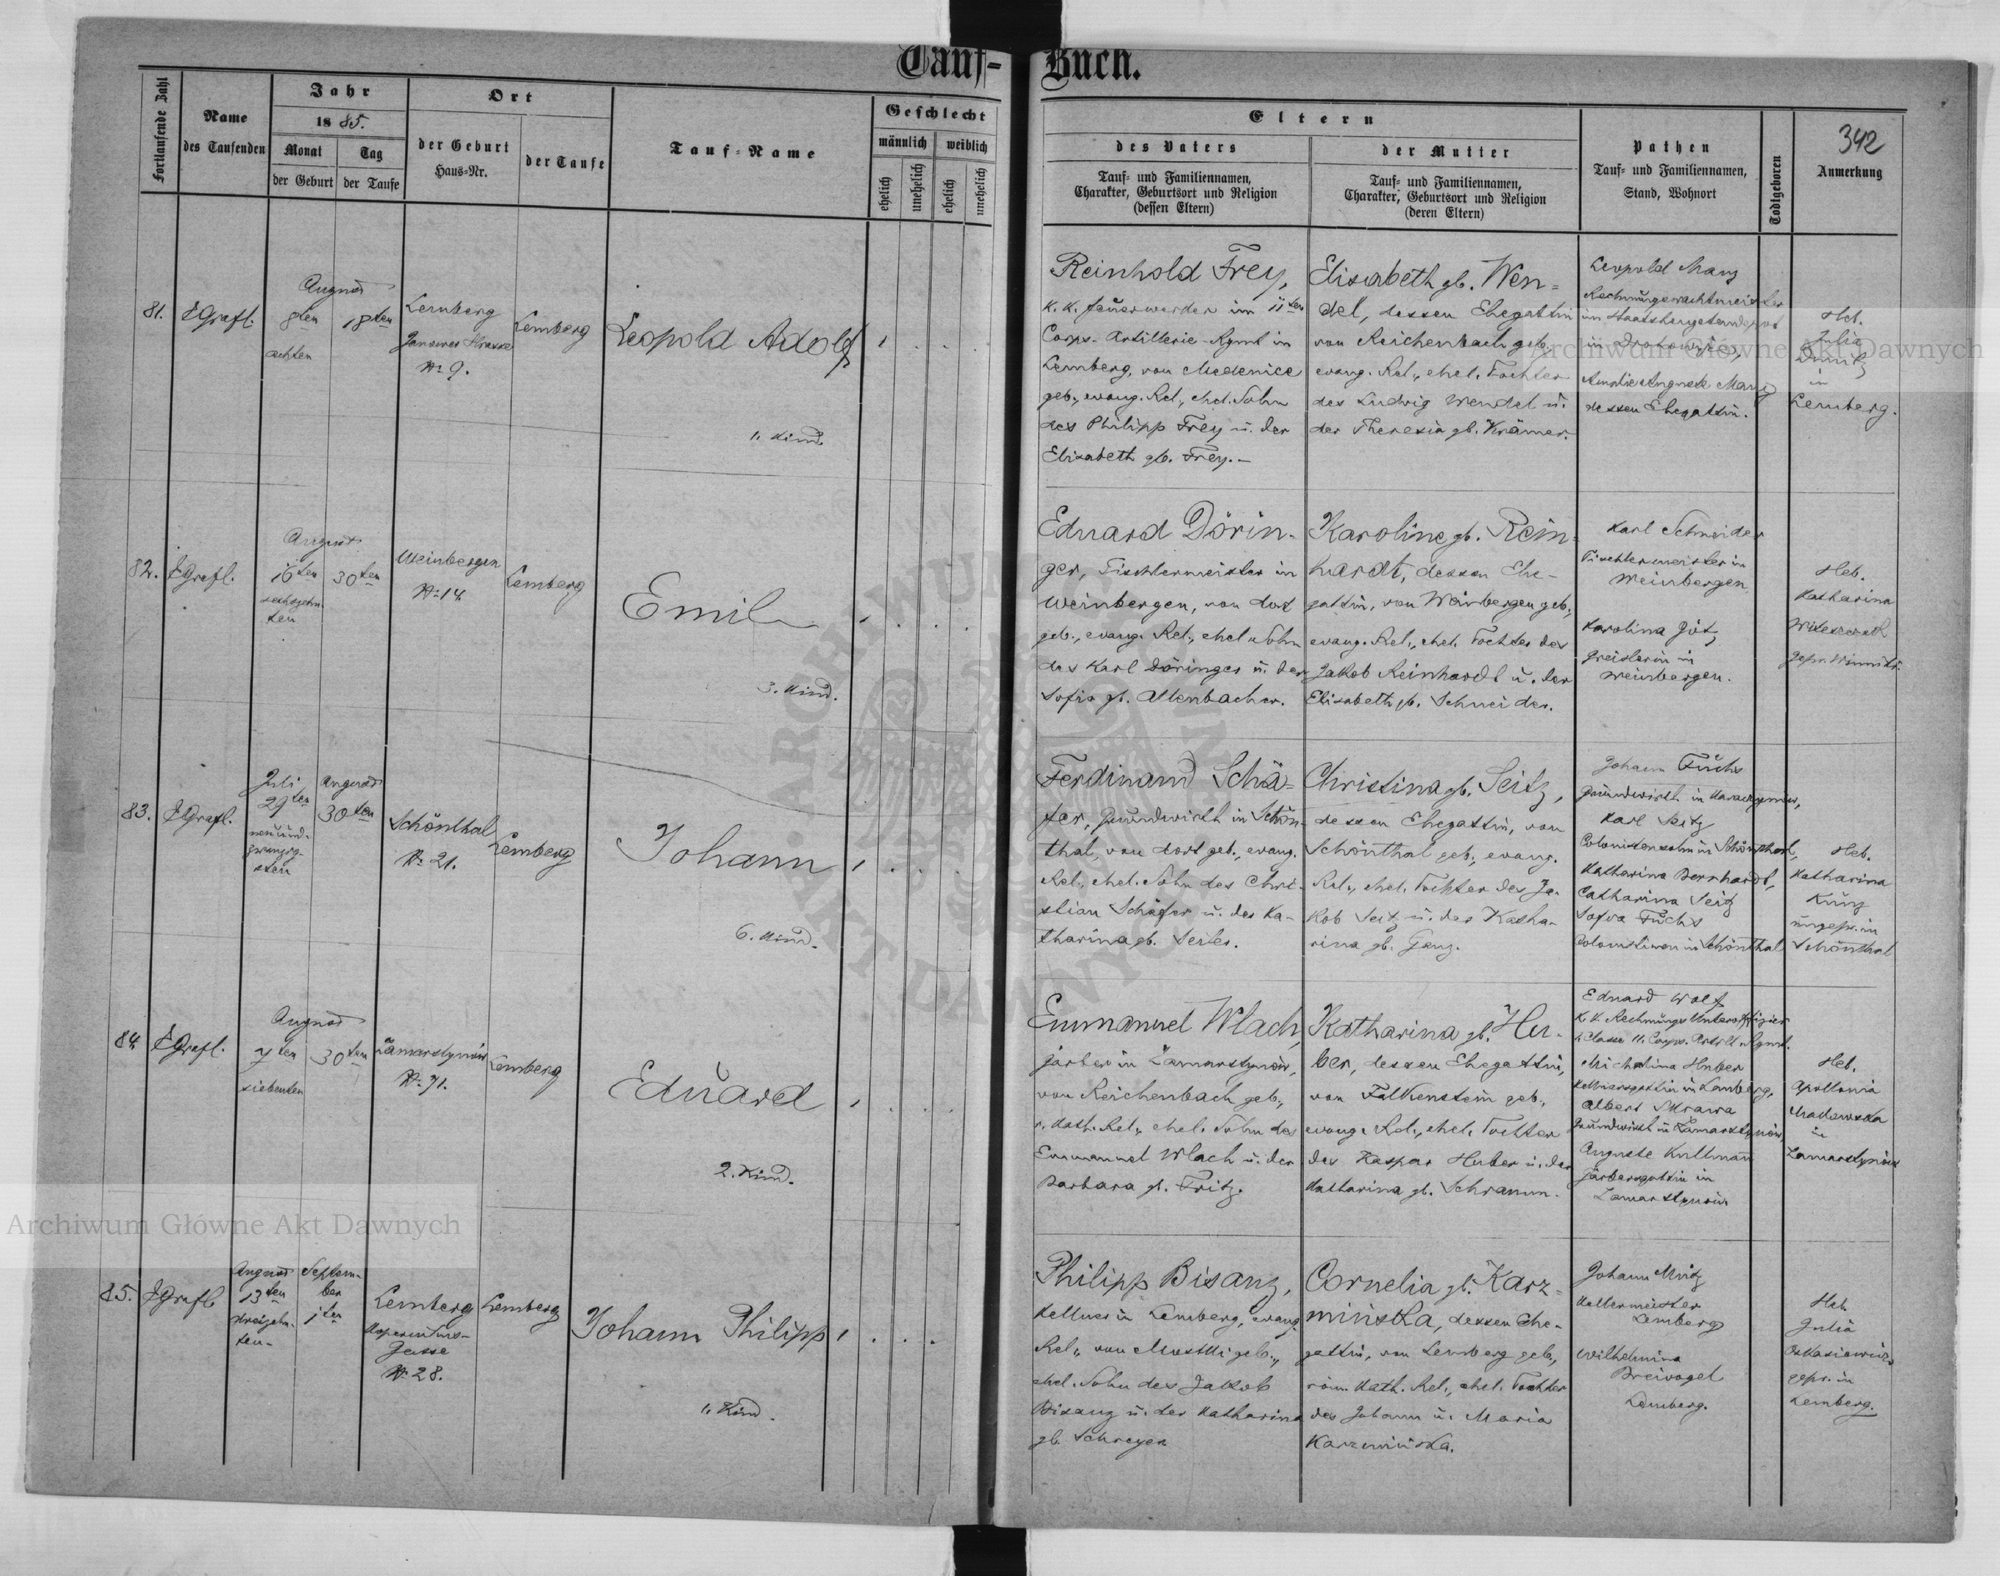 Tauf-Buch.
Fortlaufende Zahl
Name
des Taufenden
Jahr
1885.
Monat
der Geburt
Tag
der Taufe
Ort
der Geburt
Haus-Nr.
der Taufe
Tauf-Name
Geschlecht
männlich
weiblich
ehelich
unehelich
ehelich
unehelich
Eltern
des Vaters
Tauf- und Familiennamen,
Charakter, Geburtsort und Religion
(dessen Eltern)
der Mutter
Tauf- und Familiennamen,
Charakter, Geburtsort und Religion
(deren Eltern)
Pathen
Tauf- und Familiennamen,
Stand, Wohnort
Todtgeboren
342
Anmerkung
81.
EGrafl.
August
8ten
achten
18ten
Lemberg
Janower Strasse
Nr 9.
Lemberg
Leopold Adolf
1. Kind.
Reinhold Frey,
k. k. Feuerwerker im 11ten
Corps-Artillerie-Rgmt in
Lemberg, von Medenice
geb., evang. Rel., ehel. Sohn
des Philipp Frey u. der
Elisabeth gb. Frey.-
Elisabeth gb. Wen=
del, dessen Ehegattin
von Reichenbach geb.
evang. Rel., ehel. Tochter
des Ludwig Wendel u.
der Theresia gb. Krämer.
Leopold Manz
Rechnungswachtmeister
im Staatshengstendepot
in
Amalie Auguste Manz
dessen Ehegattin.
Heb.
Julia
in
Lemberg.
82.
EGrafl.
August
16ten
sechszehn-
ten
30ten
Weinbergen
Nr 14.
Lemberg
Emil
3. Kind.
Eduard Dörin-
ger, Tischlermeister in
Weinbergen, von dort
geb., evang. Rel., ehel. Sohn
des Karl Döringer u. der
Sofia gb. Allenbacher.
Karoline gb. Rein-
hardt, dessen Ehe-
gattin, von Weinbergen geb.,
evang. Rel., ehel. Tochter des
Jakob Reinhardt u. der
Elisabeth gb. Schneider.
Karl Schneider
Tischlermeister in
Weinbergen
Karolina Götz
Greislerin in
Weinbergen.
Heb.
Katharina
83.
EGrafl.
Juli
29ten
neunund-
zwanzig-
sten
August
30ten
Schönthal
Nr 21.
Lemberg
Johann
6. Kind.
Ferdinand Schä-
fer, Grundwirth in Schön-
thal, von dort geb., evang.
Rel., ehel. Sohn des Chri-
stian Schäfer u. der Ka-
tharina gb. Seiler.
Christina gb. Seitz,
dessen Ehegattin, von
Schönthal geb., evang.
Rel., ehel. Tochter des Ja-
kob Seitz u. der Katha-
rina gb. Ganz.
Johann Fuchs
Grundwirth in
Karl Seitz
Colonistensohn in Schönthal,
Katharina Bernhardt,
Catharina Seitz
Sofia Fuchs
Colonistinen in Schönthal
Heb.
Katharina
Kunz
ungepr. in
Schönthal
84.
EGrafl.
August
7ten
siebenten
30ten
Zamarstynów
Nr 71.
Lemberg
Eduard
2. Kind.
Emmanuel Wlach,
Gärber in Zamarstynów,
von Reichenbach geb.,
r. kath. Rel., ehel. Sohn des
Emmanuel Wlach u. der
Barbara gb. Fritz.
Katharina gb. Hu-
ber, dessen Ehegattin,
von Falkenstein geb.,
evang. Rel., ehel. Tochter
des Kaspar Huber u. der
Katharina gb. Schramm.
Eduard Wolf
k. k. Rechnungs Unteroffizier
1 Classe 11. Corps. Artill. Rgmt.
Michalina Huber
Kellnersgattin in Lemberg,
Albert Skrawa
Grundwirth in Zamarstynów,
Auguste Kullmann
Gärbersgattin in
Zamarstynów
Heb.
Apollonia
in
Zamarstynów
85.
EGrafl.
August
13ten
dreizehn-
ten-
Septem-
ber
1ten
Lemberg
Kopernikus-
Gasse
Nr 28.
Lemberg
Johann Philipp
1. Kind.
Philipp Bisanz,
Kellner in Lemberg, evang.
Rel., von Mostki geb.,
ehel. Sohn des Jakob
Bisanz u. der Katharina
gb. Schreyer
Cornelia gb. Karz=
minska, dessen Ehe-
gattin, von Lemberg geb.,
röm. kath. Rel., ehel. Tochter
des Johann u. Maria
Johann Mritz
Kellermeister
Lemberg
Wilhelmina
Dreivogel
Lemberg.
Heb.
Julia
gepr. in
Lemberg.
Archiwum Główne Akt Dawnych
Archiwum Główne Akt Dawnych
ARCHIWUM GŁÓWNE AKT DAWNYCH